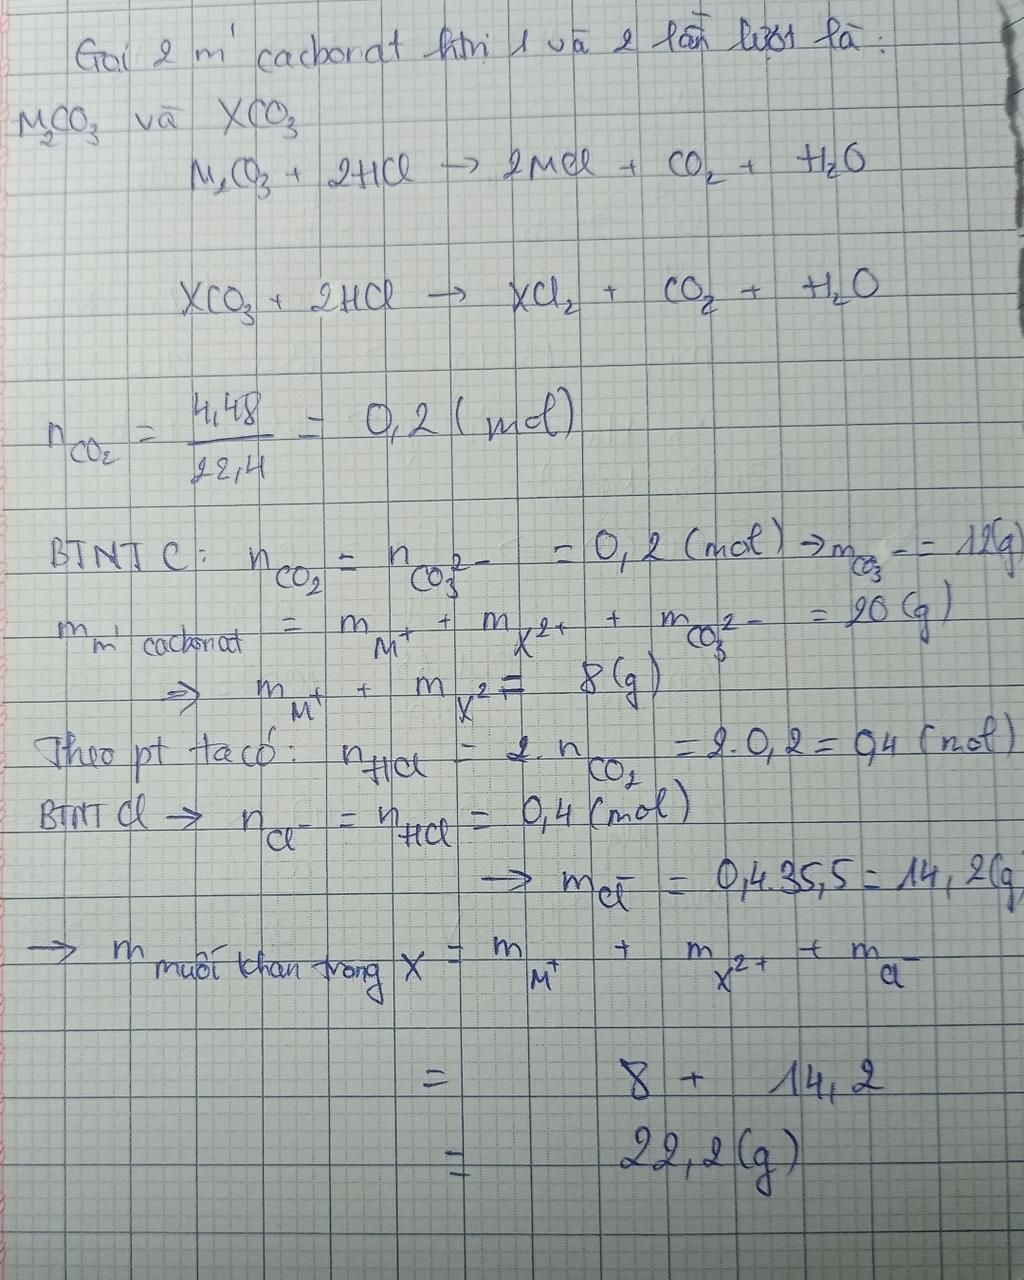 Gọi 2 m' cacbonat htri 1 và 2 lần lượt là:
M₂CO₃ và XCO₃
M₂CO₃ + 2HCl → 2MCl + CO₂ + H₂O
XCO₃ + 2HCl → XCl₂ + CO₂ + H₂O
n_CO₂ = 4,48/22,4 = 0,2 (mol)
BTNT C: n_CO₂ = n_CO₃²⁻ = 0,2 (mol) → m_CO₃⁻ = 12(g)
m_m' cacbonat = m_M⁺ + m_X²⁺ + m_CO₃²⁻ = 20 (g)
⇒ m_M⁺ + m_X² = 8 (g)
Theo pt ta có: n_HCl = 2. n_CO₂ = 2. 0,2 = 0,4 (mol)
BTNT Cl → n_Cl⁻ = n_HCl = 0,4 (mol)
→ m_Cl⁻ = 0,4.35,5 = 14,2(g
→ m_muối khan trong X = m_M⁺ + m_X²⁺ + m_Cl⁻
= 8 + 14,2
= 22,2 (g)